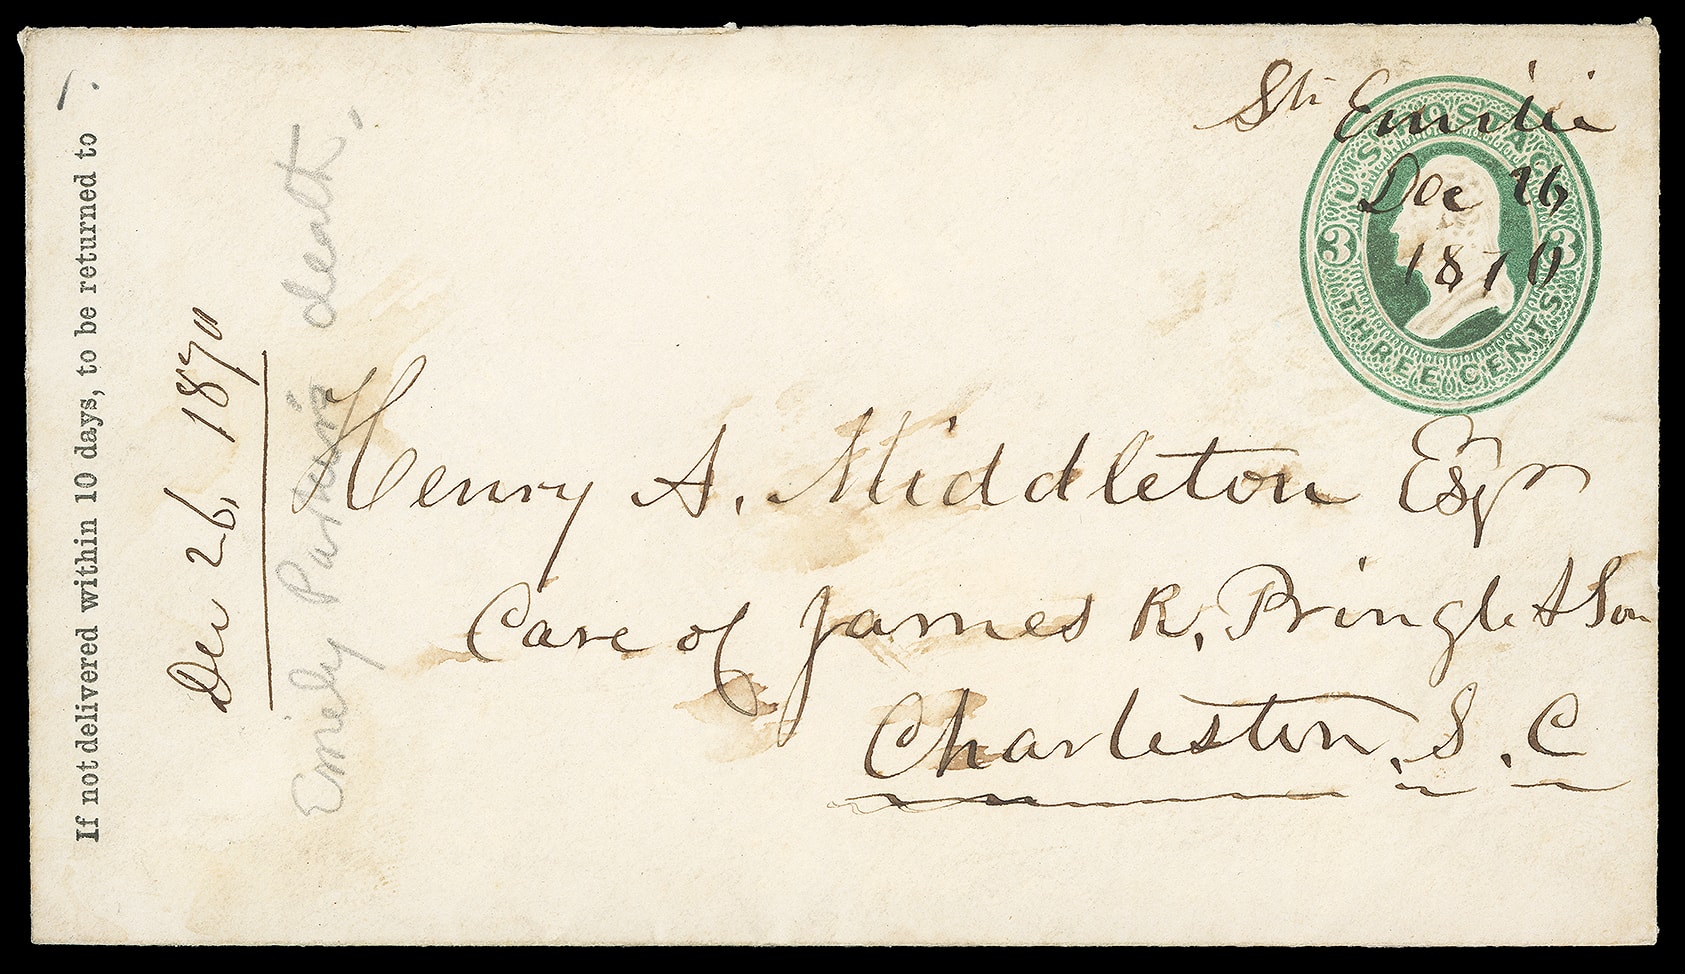 If not delivered within 10 days, to be returned to
Dec 26, 1870
Emily death,
Sti Emilie
Dec 26
1870
U.S. POSTAGE
3 3
THREE CENTS
Henry A. Middleton Esqr
Care of James R. Pringle & Son
Charleston, S. C